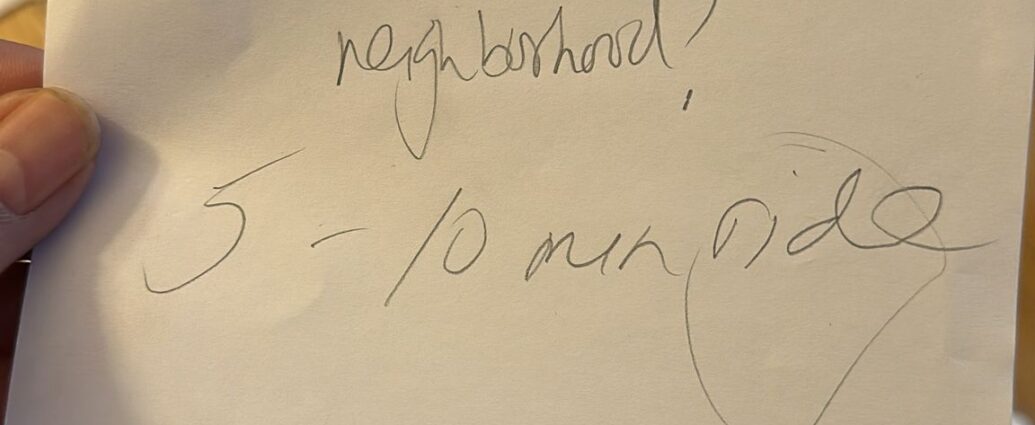 neighborhood?
5 - 10 min ride